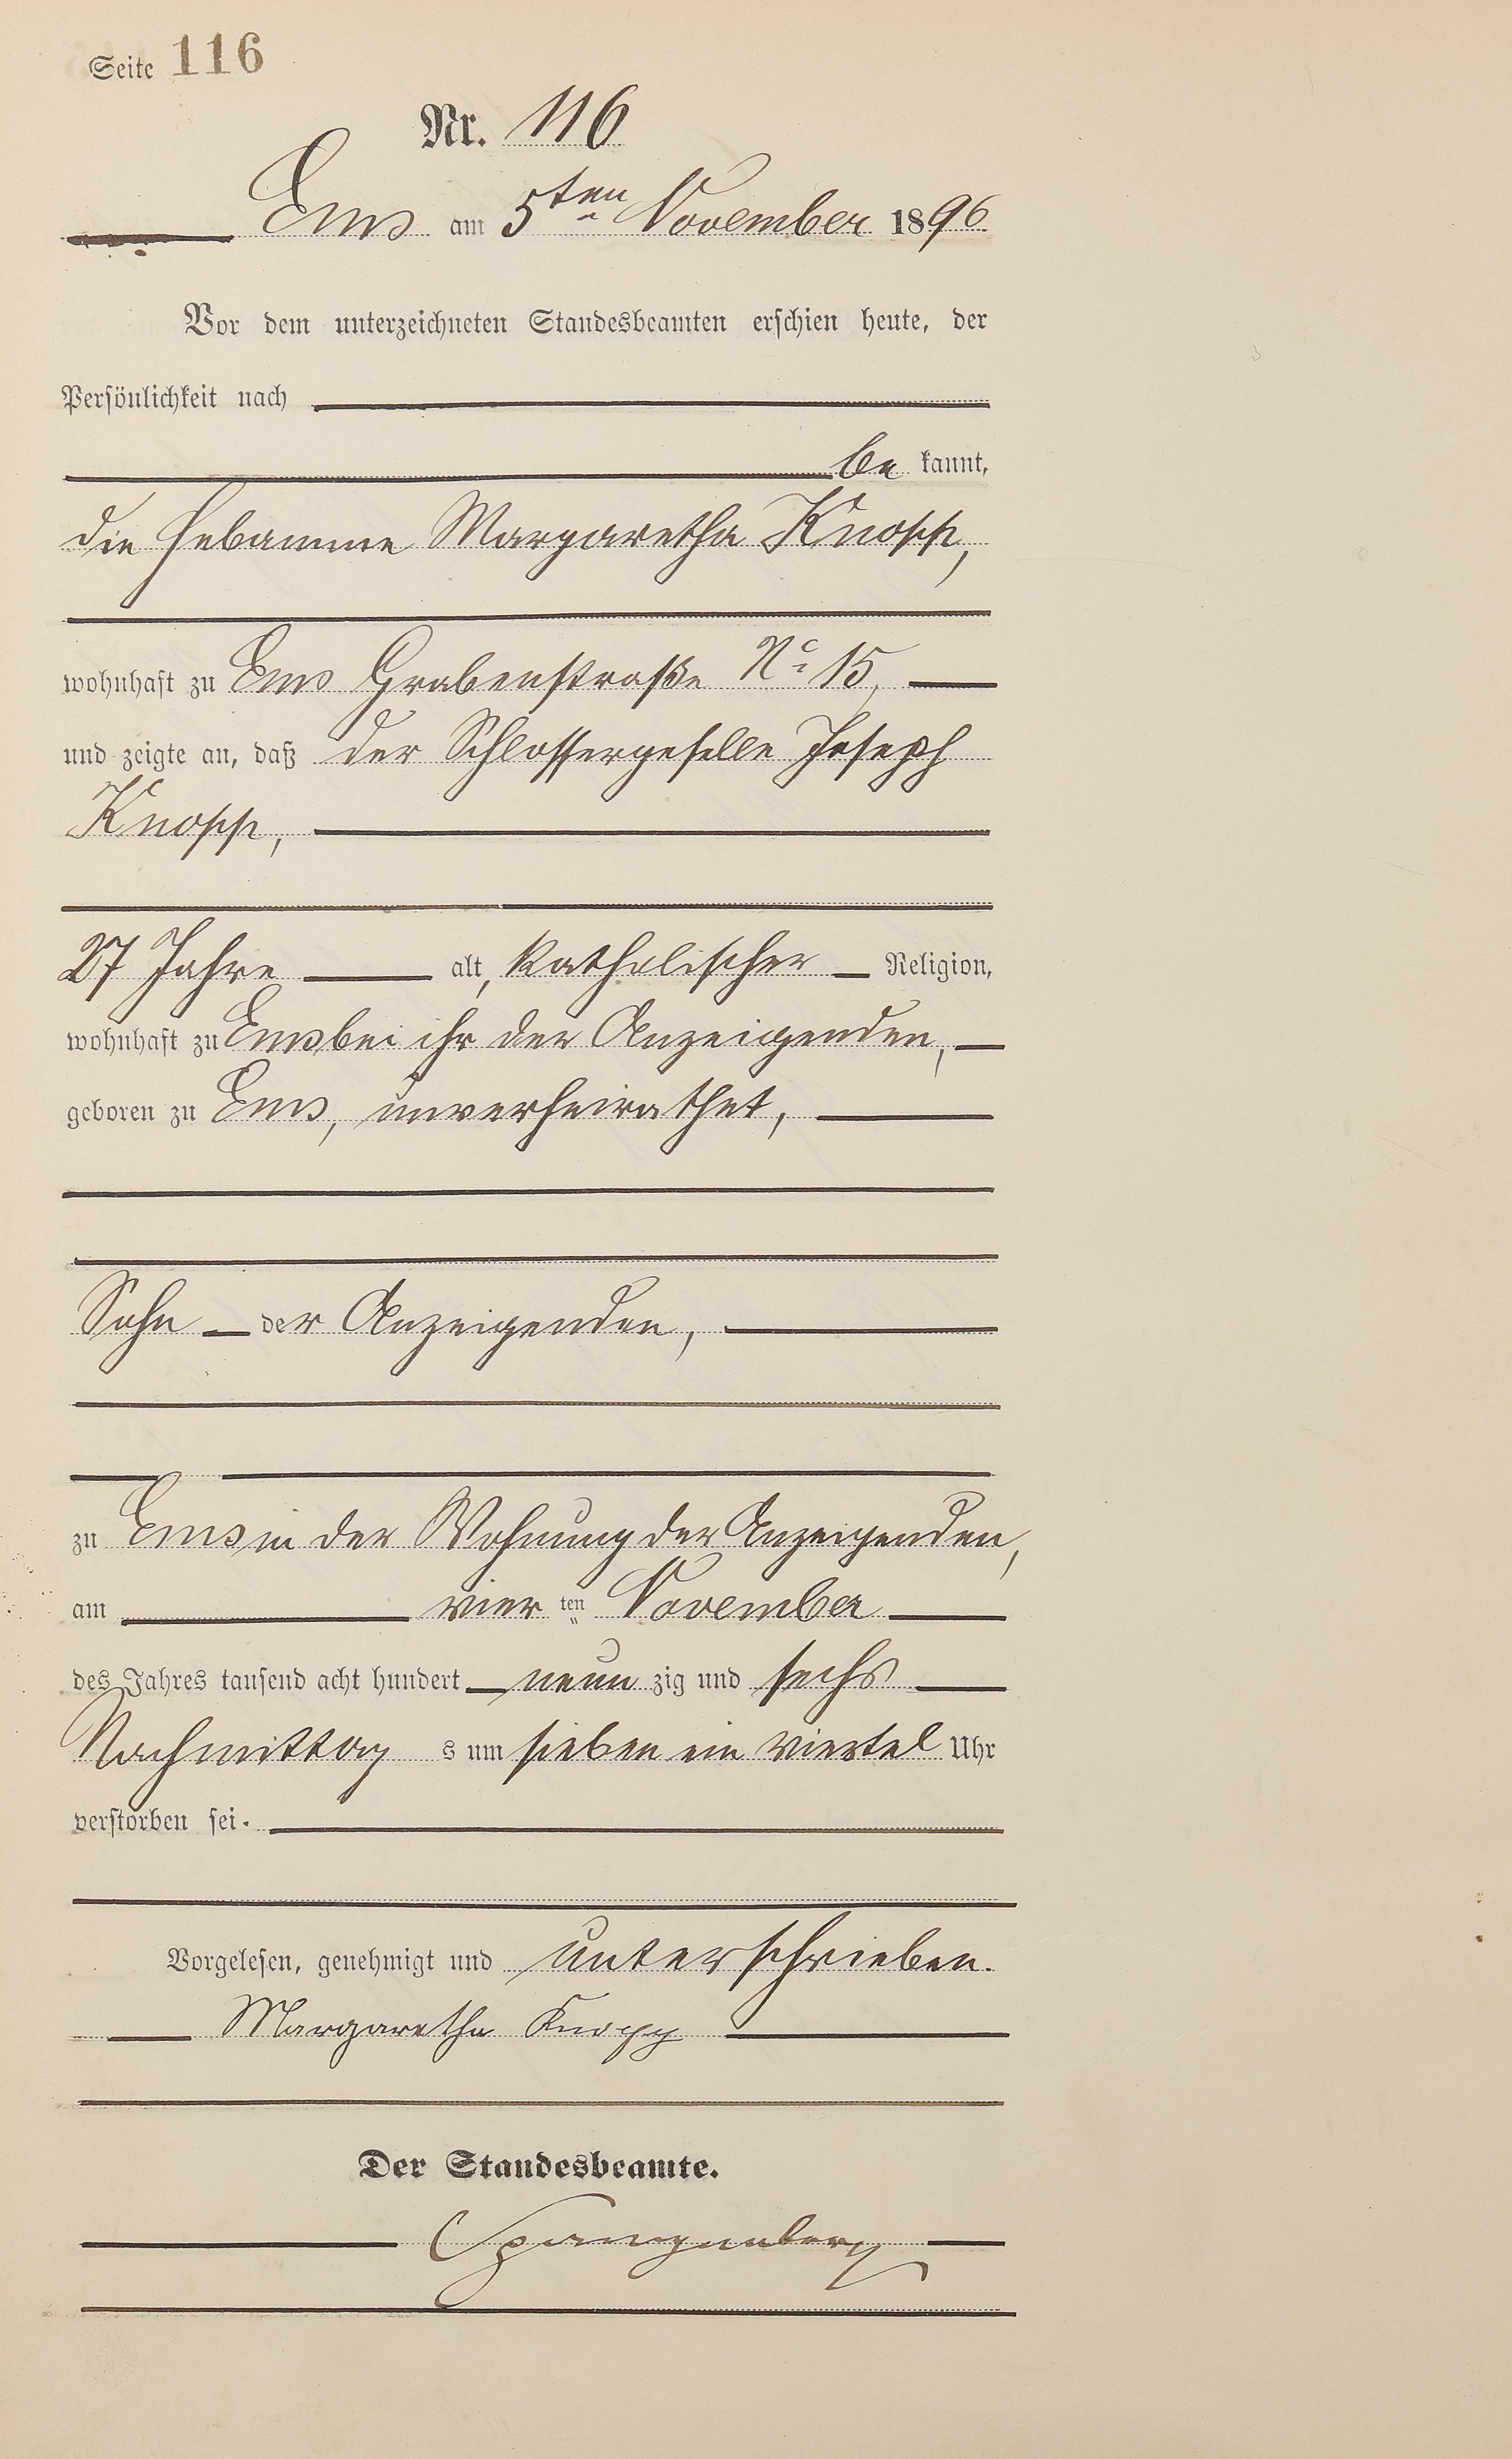 Seite 116
Nr. 116
Ems am 5ten November 1896
Vor dem unterzeichneten Standesbeamten erschien heute, der
Persönlichkeit nach
be kannt,
die Hebamme Margaretha Knopp,
wohnhaft zu Ems Grabenstraße No 15,
und zeigte an, daß der Schlossergeselle Joseph
Knopp,
27 Jahre alt, katholischer Religion,
wohnhaft zu Ems bei ihr der Anzeigenden,
geboren zu Ems, unverheirathet,
Sohn der Anzeigenden,
zu Ems in der Wohnung der Anzeigenden,
am vier ten November
des Jahres tausend acht hundert neun zig und sechs
Nachmittag s um sieben ein viertel Uhr
verstorben sei.
Vorgelesen, genehmigt und unterschrieben.
Margaretha Knopp
Der Standesbeamte.
Spangenberg